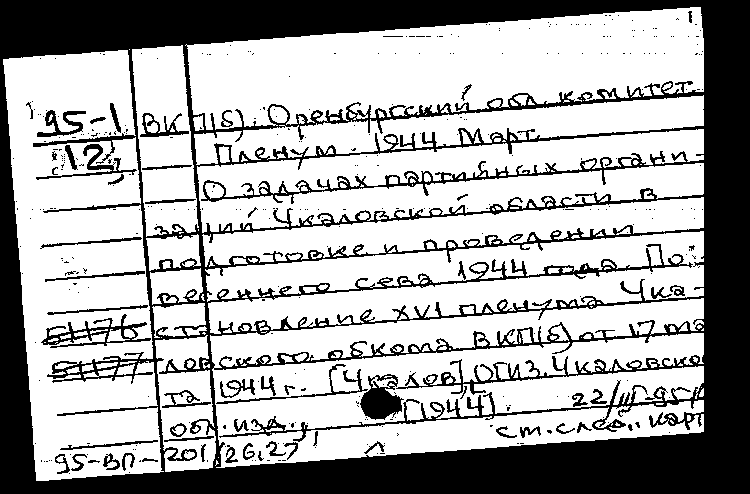 1
95-1 ВКП(б). Оренбургский обл. комитет.
12, Пленум. 1944. Март.
О задачах партийных органи-
заций Чкаловской области в
подготовке и проведении
весеннего сева 1944 года. По-
51176 становление XVI пленума Чка-
51177 ловского обкома ВКП(б) от 17 мар
та 1944 г. [Чкалов], ОГИЗ. Чкаловско
обл. изд., [1944]. 22/III-95г
см. след. карт
95-ВП-201/26,27